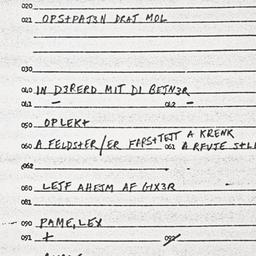 020
021 OPS+PAJ3N DRAJ MOL
030
040 IN D3RERD MIT DI BEJN3R
041 — 042 —
050 OPLEK+
060 A FELDSH+ER/ER FARS+TEJT A KRENK
061 A RFUJE
062
080 LEJF AHEJM AF GIX3R
081
090 PAME,LEX
091 + 092